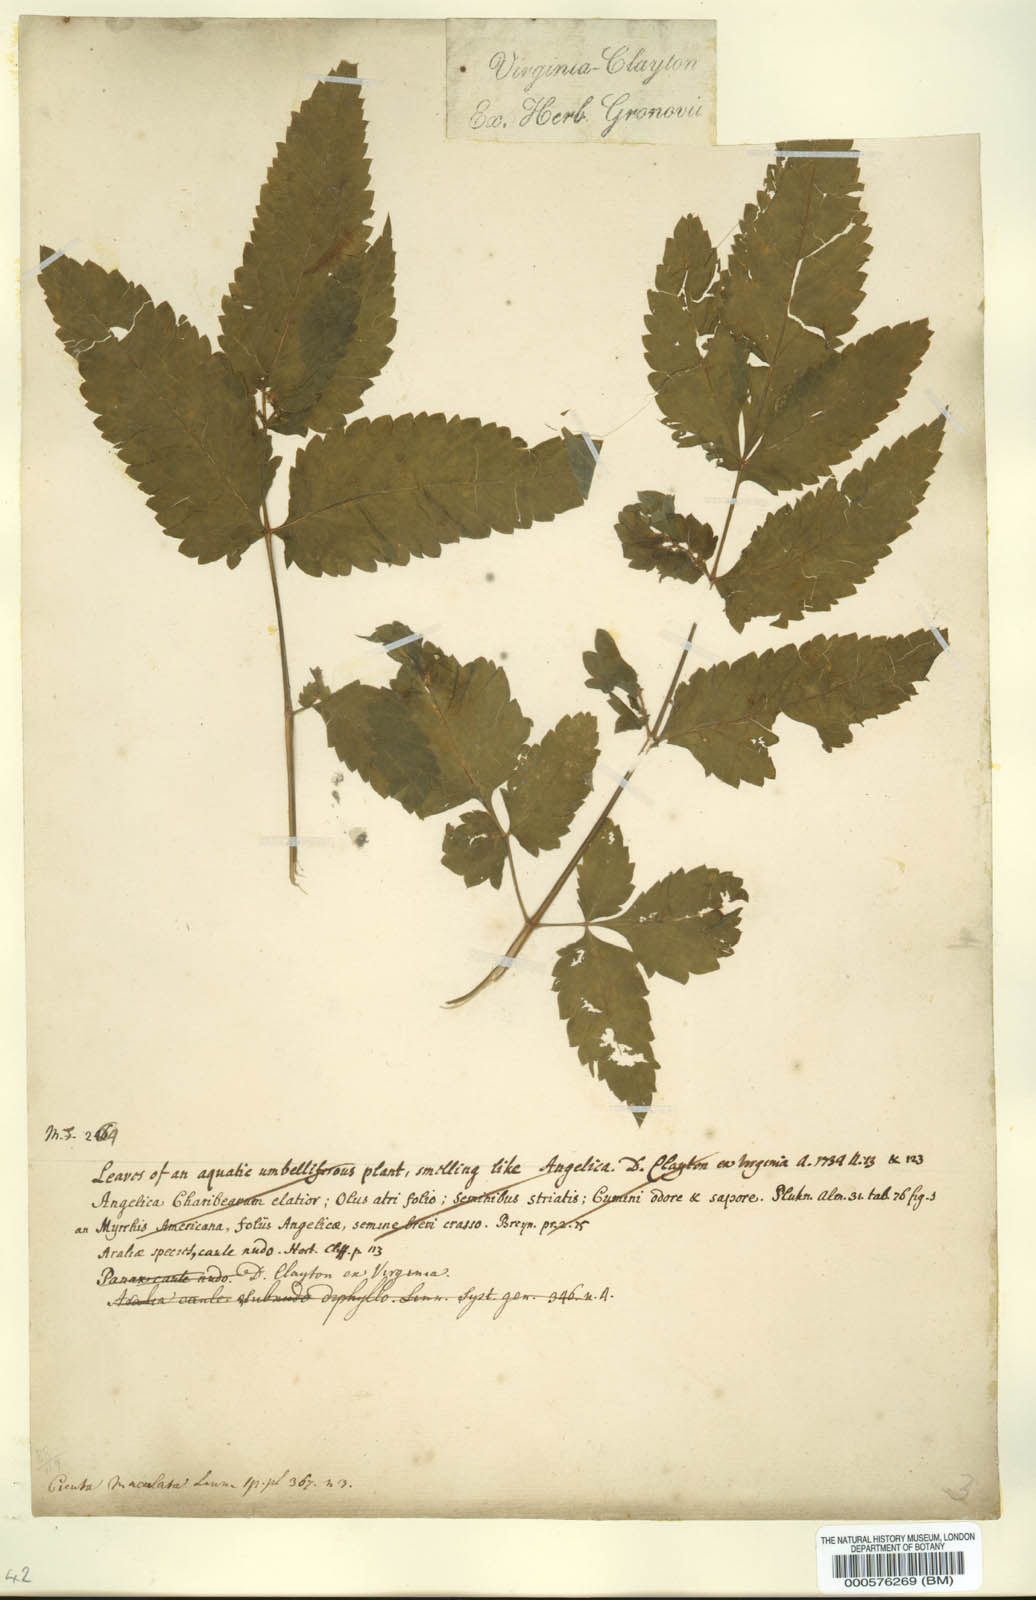 Virginia-Clayton
Ex. Herb. Gronovii
M.S.
Leaves of an aquatic umbelliferous plant, smelling like Angelica. D. Clayton ex Virginia A. 1734 n. 13 & 123
Angelica Charibearum elatior; Olus atri folio; Seminibus striatis; Cumini odore & sapore. Plukn. Alm. 31. tab. 76 fig. 1
an Myrrhis Americana, foliis Angelicæ, semine brevi crasso. Breyn. pr. 2. 75
Araliæ species, caule nudo. Hort. Cliff. p. 113
Panax caule nudo. D. Clayton ex Virginia.
Aralia caule subnudo diphyllo. Linn. Syst. gen. 346. n. A.
Cicuta maculata Linn. sp. pl 367. n 3.
3
42
THE NATURAL HISTORY MUSEUM, LONDON
DEPARTMENT OF BOTANY
000576269 (BM)